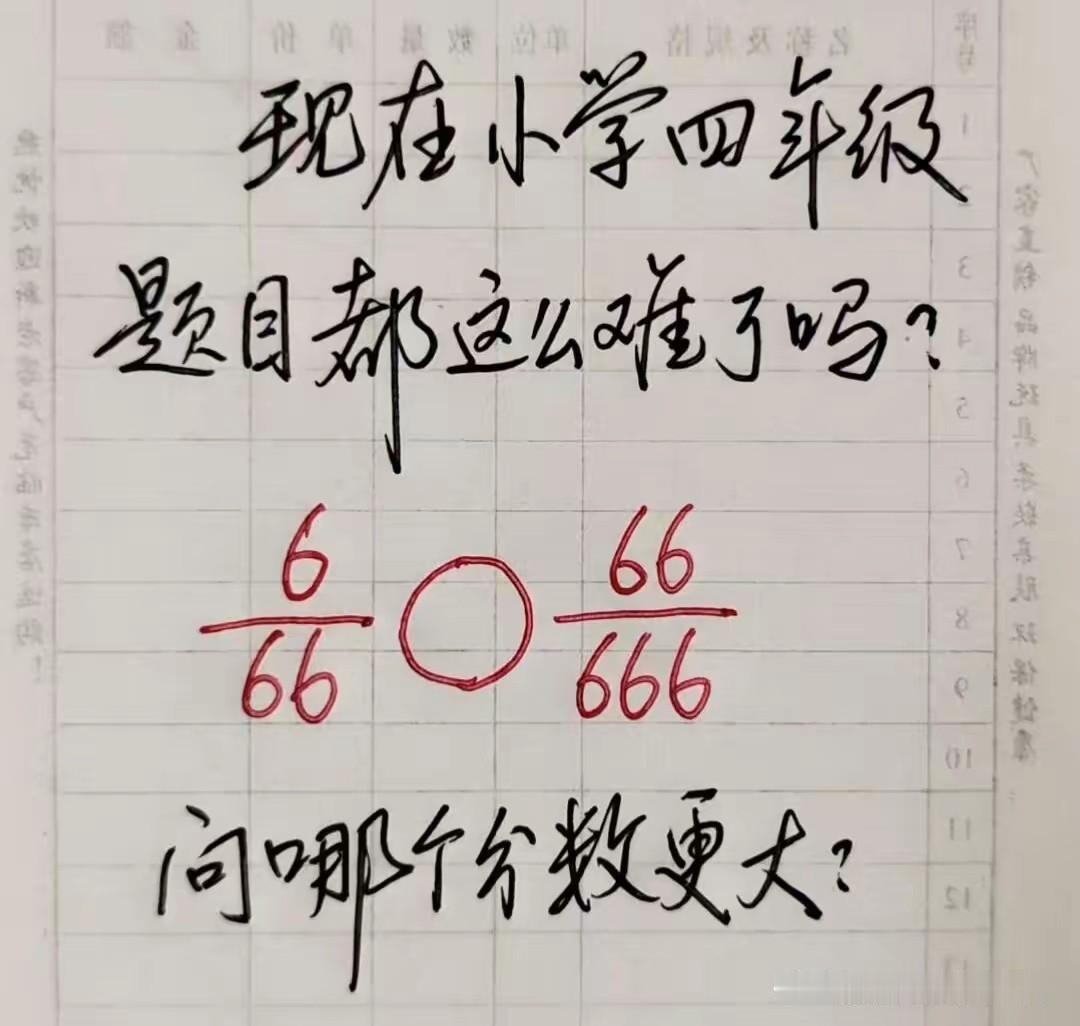 序号 名称及规格 单位 数量 单价 金额
现在小学四年级
题目都这么难了吗?
6/66 ○ 66/666
问哪个分数更大?
1
2
3
4
5
6
7
8
9
10
11
12
厂家直销品牌玩具